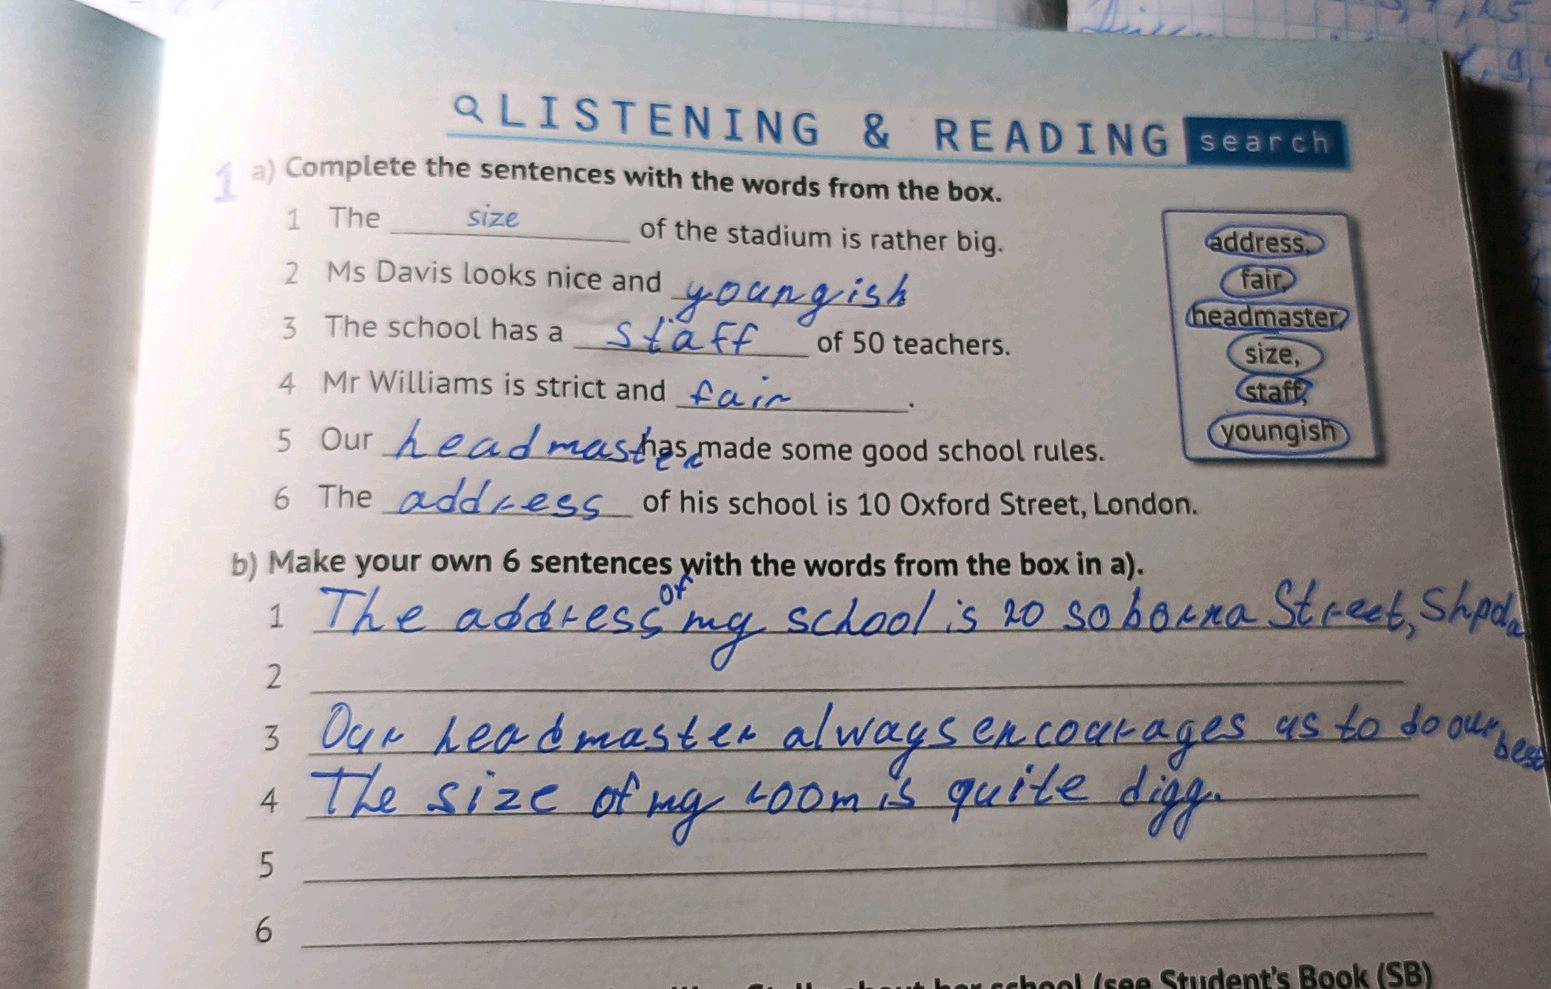 LISTENING & READING search
1 a) Complete the sentences with the words from the box.
1 The size of the stadium is rather big.
2 Ms Davis looks nice and youngish
3 The school has a staff of 50 teachers.
4 Mr Williams is strict and fair.
5 Our headmaster has made some good school rules.
6 The address of his school is 10 Oxford Street, London.
address,
fair,
headmaster,
size,
staff,
youngish
b) Make your own 6 sentences with the words from the box in a).
1 The address of my school is 20 soborna Street, Shpola
2
3 Our headmaster always encourages us to do our best
4 The size of my room is quite digg.
5
6
school (see Student's Book (SB)